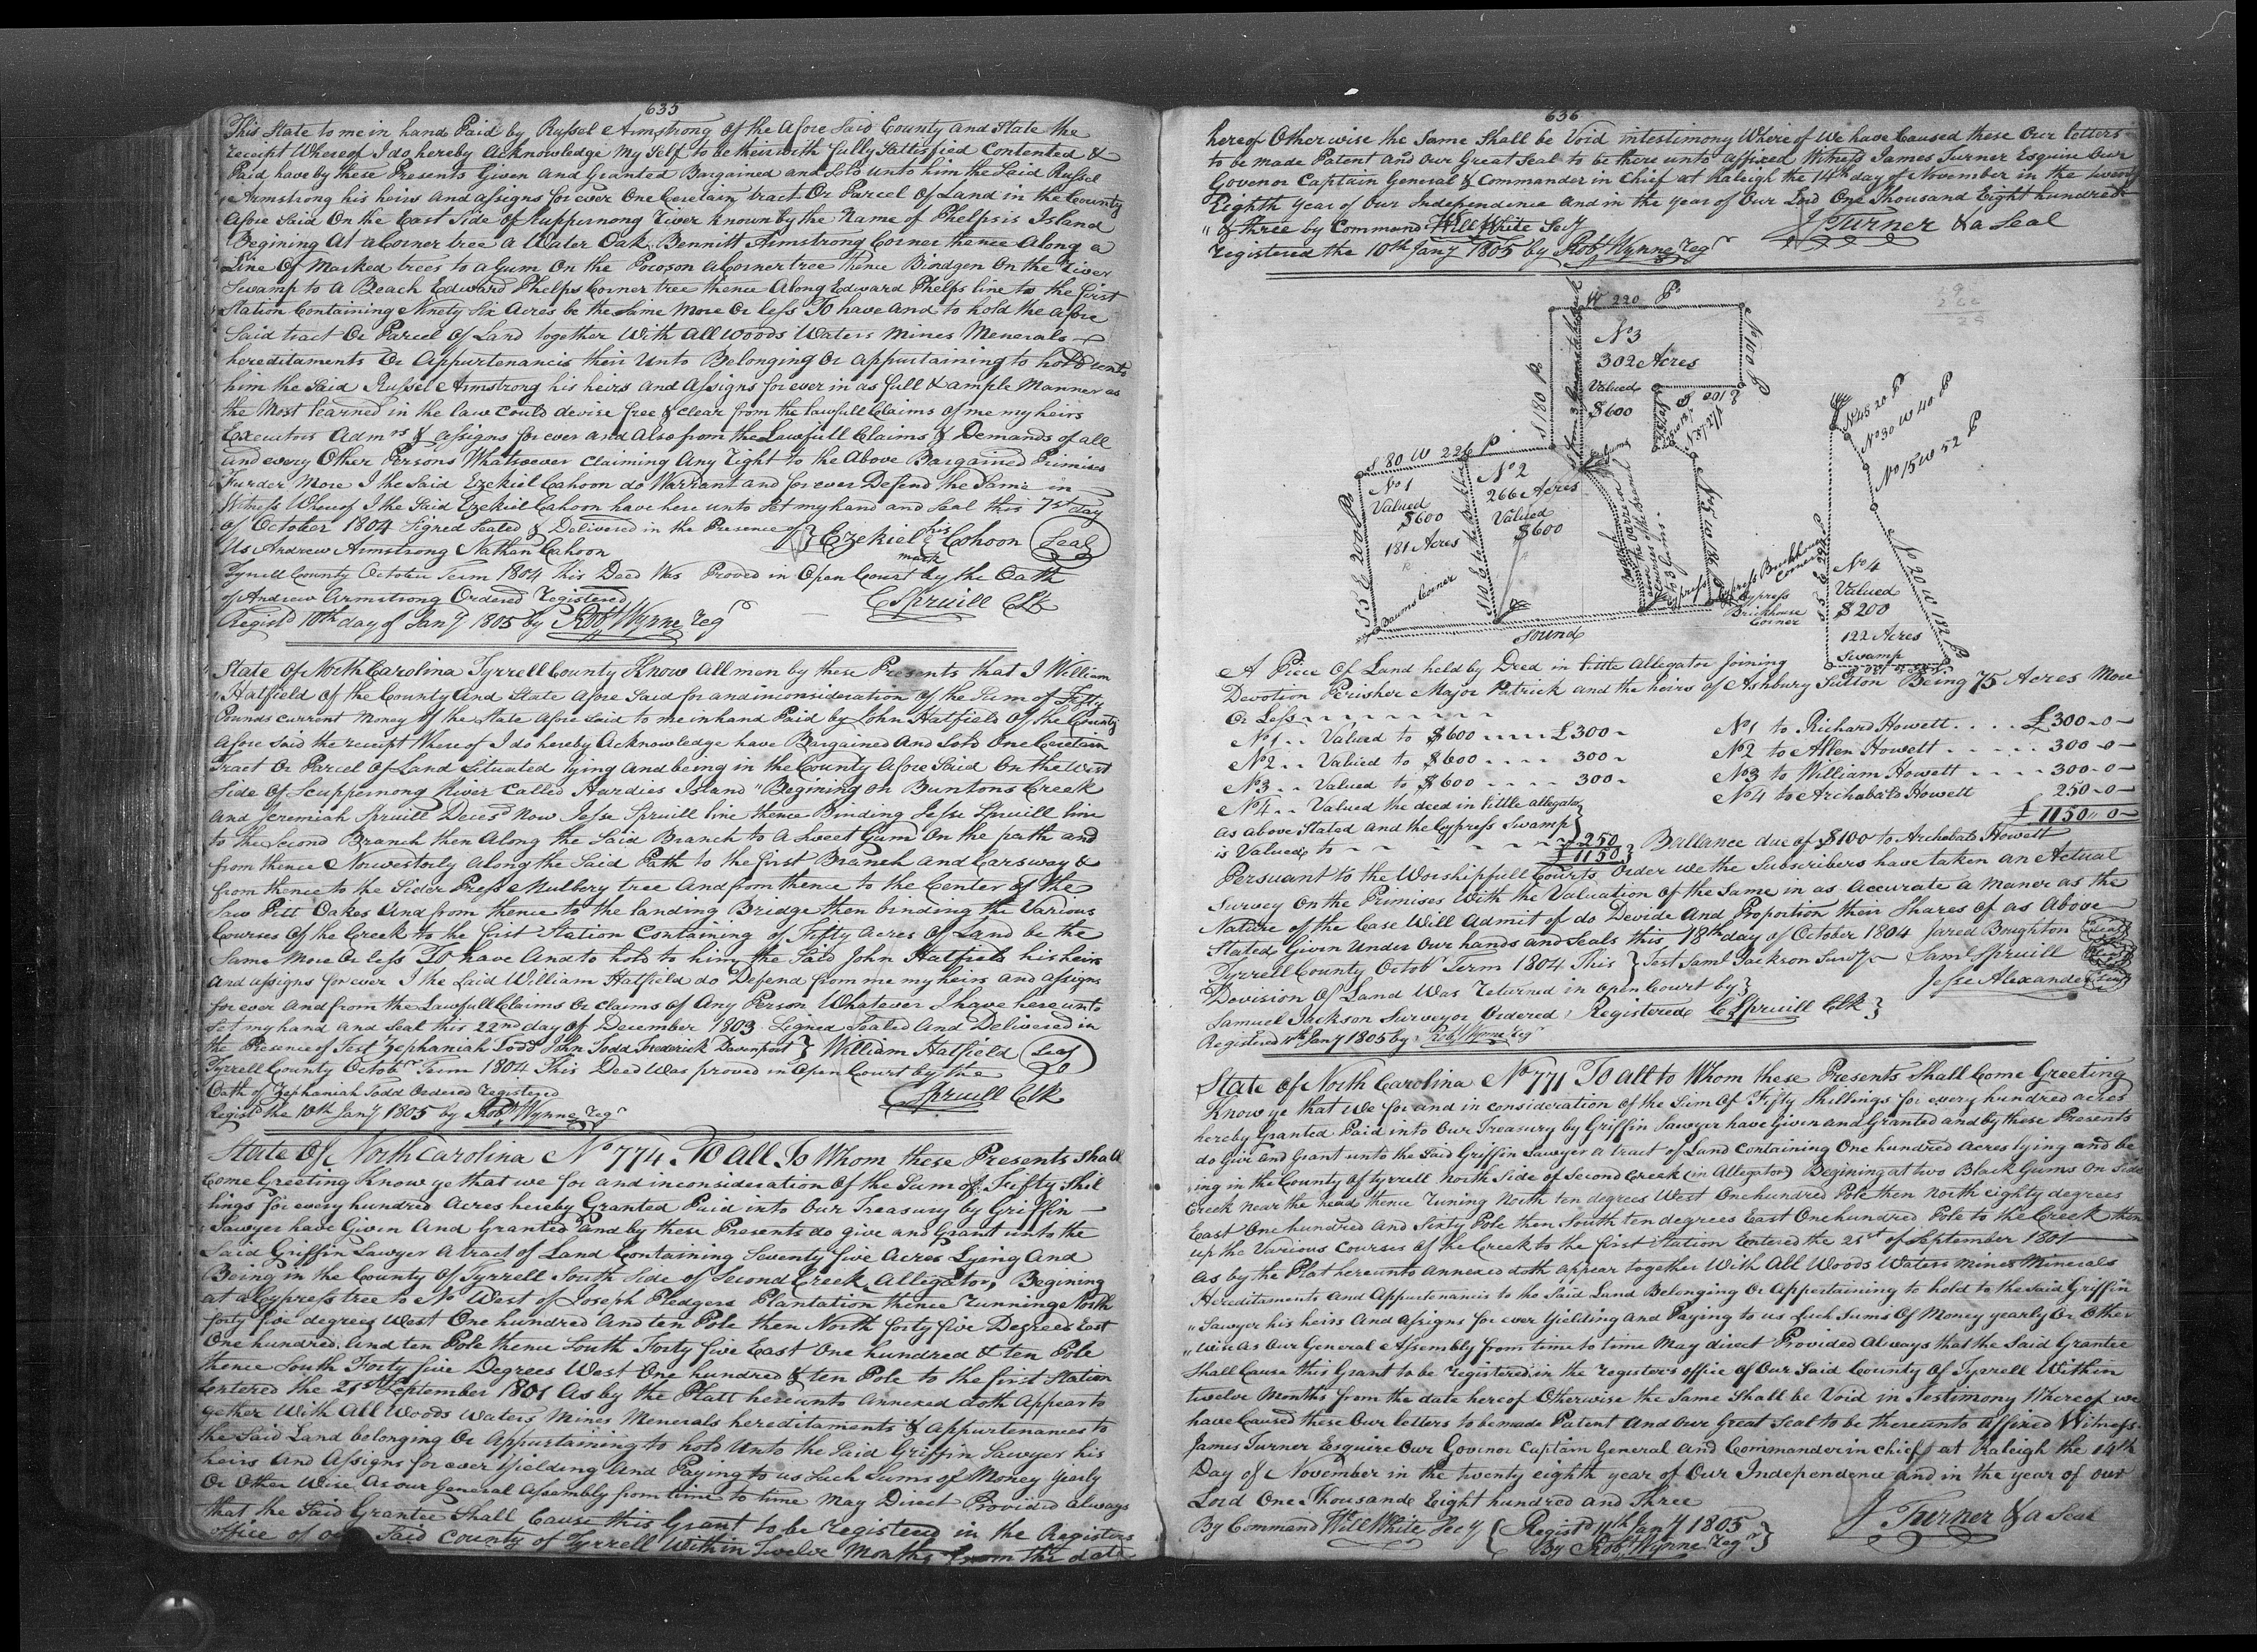 635
This State to me in hand Paid by Russel Armstrong of the afore Said County and State the
receipt Whereof I do hereby acknowledge my Self to be their with fully Sattisfied Contented &
Paid have by these Presents Given and Granted Bargained and Sold unto him the Said Russel
Armstrong his heirs and assigns for ever One Certain tract Or Parcel Of Land in the County
afore Said On the East Side of Scuppernong River known by the Name of Phelpsis Island
Begining At a Corner tree a Water Oak Bennitt Armstrong Corner thence Along a
Line Of Marked trees to a Gum On the Pocoson a Corner tree thence Bindgen On the River
Swamp to a Beach Edward Phelps Corner tree thence Along Edward Phelps line to the first
Station Containing Ninety Six Acres be the Same More Or less To have and to hold the afore
Said tract Or Parcel Of Land together With all Woods Waters Mines Menerals
hereditaments Or Appurtenancis their Unto Belonging Or appurtaining to hold unto
him the Said Russel Armstrong his heirs and Assigns for ever in as full & ample Manner as
the Most learned in the law Could devise free & clear from the lawfull Claims of me my heirs
Executors Admrs & assigns for ever and Also from the Lawfull Claims & Demands of all
and every Other Persons Whatsoever Claiming Any Right to the Above Bargained Primises
Furder More I the Said Ezekiel Cahoon do Warrant and for ever Defend the Same in
Witness Whereof I the Said Ezekiel Cahoon have here unto Set my hand and Seal this 7st day
of October 1804 Signed Sealed & Delivered in the Presence of } Ezekiel his mark Cohoon Seal
Us Andrew Armstrong Nathan Cahoon
Tyrrell County October Term 1804 This Deed Was Proved in Open Court by the Oath
of Andrew Armstrong Ordered Registered
C Spruill Clk
Registd 10th day of Jany 1805 by Robt Wynne Regr
State Of North Carolina Tyrrell County Know all men by these Presents that I William
Hatfield Of the County and State afore Said for and inconsideration Of the Sum of Fifty
Pounds current Money Of the State afore Said to me in hand Paid by John Hatfield Of the County
afore Said the receipt Where of I do hereby Acknowledge have Bargained And Sold One Certain
Tract Or Parcel Of Land Situated lying and being in the County afore Said On the West
Side Of Scuppernong River Called Hardies Island "Begining on Buntons Creek
and Jeremiah Spruill Decesd Now Jesse Spruill line thence Binding Jesse Spruill line
to the Second Branch then Along the Said Branch to a Sweet Gum On the path and
from thence Norwestorly along the Said Path to the first Branch and Carsway &
from thence to the Sider Press Mulbery tree And from thence to the Center Of the
Saw Pitt Oakes and from thence to the landing Bridge then binding the Various
Courses Of the Creek to the first Station Containing of Fifty acres Of Land be the
Same More Or less To have And to hold to him the Said John Hatfield his heirs
and assigns for ever I the Said William Hatfield do Defend from me my heirs and assigns
for ever and from the Lawfull Claims Or claims of Any Person Whatever I have here unto
Set my hand and Seal this 22nd day of December 1803 Signed Sealed And Delivered in
the Presence of Test Zephaniah Todd John Todd Frederick Davenport } William Hatfield Seal
Tyrrell County Octobr Term 1804 This Deed Was proved in Open Court by the
Oath of Zephaniah Todd Ordered Registered
C Spruill Clk
Registd the 10th Jany 1805 by Robt Wynne Regr
State Of North Carolina No 774 To All To Whom these Presents Shall
Come Greeting Know ye that we for and inconsideration Of the Sum of Fifty Shil
lings for every hundred Acres hereby Granted Paid into Our Treasury by Griffin
Sawyer have Given And Granted and by these Presents do give and Grant unto the
Said Griffin Sawyer A tract of Land Containing Seventy five Acres Lying And
Being in the County Of Tyrrell South Side of Second Creek Allegator, Begining
at a Cypress tree to No West of Joseph Pledgers Plantation thence Running North
forty five degrees West One hundred and ten Pole then North forty five Degrees East
One hundred and ten Pole thence South Forty five East One hundred & ten Pole
thence South Forty five Degrees West One hundred & ten Pole to the first Station
Entered the 21st September 1801 As by the Platt hereunto Annexed doth Appear to
gether With All Woods Waters Mines Menerals hereditaments & appurtenances to
the Said Land belonging Or Appurtaining to hold Unto the Said Griffin Sawyer his
heirs And Assigns for ever Yielding And Paying to us Such Sums of Money yearly
Or Other Wise As our General Assembly from time to time May Direct Provided always
that the Said Grantee Shall Cause this Grant to be registered in the Registers
office of our Said County of Tyrrell Within Twelve Months from the date
636
hereof Otherwise the Same Shall be Void intestimony Where of We have Caused these Our letters
to be made Patent and Our Great Seal to be there unto affixed Witness James Turner Esquire Our
Govenor Captain General & Commander in Chief at Raleigh the 14th day of November in the twenty
Eighth year of Our Independence and in the year of Our Lord One Thousand Eight hundred
& three by Command Will White Secy
J Turner & a Seal
Registered the 10th Jany 1805 by Robt Wynne Regr
W 220 Po
No 3
302 Acres
Valued
$600
S 180 P
N 100 P
E 100 P
S 80 W 226 P
No 1
Valued
$600
181 Acres
No 2
266 Acres
Valued
$600
S 5 E 200 Po
Daums Corner
Sound
Cypress
Cypress
Brickhouse
Corner
Cypress Brickhouse
Corner
N 48 20 P
No 30 W 40 P
No 15 W 52 P
No 20 W 182 P
No 4
Valued
$200
122 Acres
Swamp
A Piece Of Land held by Deed in little Allegator Joining
Devotion Perisher Major Patrick and the heirs of Ashbury Sutton Being 75 Acres More
Or Less
No 1 .. Valued to $600 .... £300
No 2 .. Valued to $600 .... 300
No 3 .. Valued to $600 .... 300
No 4 .. Valued the deed in little allegator
as above Stated and the Cypress Swamp }
is Valued to 250
£1150 } Ballance due of $100 to Archabald Howett
No 1 to Richard Howett .... £300-0-
No 2 to Allen Howett ..... 300-0-
No 3 to William Howett .... 300-0-
No 4 to Archabald Howett 250-0-
£1150"0-
Persuant to the Worshipfull Courts Order we the Subscribers have taken an Actual
Survey On the Primises With the Valuation Of the Same in as Accurate a Maner as the
Nature of the Case Will Admit of do Devide And Proportion their Shares Of as Above
Stated Given Under Our hands and Seals this 18th day of October 1804 Jared Brighton
Tyrrell County Octobr Term 1804 This } Test Saml Jackson Survr Saml Spruill
Devision Of Land Was Returned in Open Court by } Jesse Alexander
Samuel Jackson Surveyor Ordered Registered C Spruill Clk }
Registered 11th Jany 1805 by Robt Wynne Regr
State Of North Carolina No 771 To all to Whom these Presents Shall Come Greeting
Know ye that We for and in consideration Of the Sum Of Fifty Shillings for every hundred acres
hereby Granted Paid into Our Treasury by Griffin Sawyer have Given and Granted and by these Presents
do Give and Grant unto the Said Griffin Sawyer A tract of Land Containing One hundred Acres lying and be
ing in the County of tyrrell North Side of Second Creek (in Allegator) Begining at two Black Gums On Side
Creek near the head thence Runing North ten degrees West One hundred Pole then North eighty degrees
East One hundred And Sixty Pole then South ten degrees East One hundred Pole to the Creek then
up the Various Courses of the Creek to the first Station Entered the 21st of September 1801
as by the Plat hereunto Annexed doth appear together With All Woods Waters Mines Minerals
Hereditaments And Appurtenancis to the Said Land Belonging Or Appertaining to hold to the Said Griffin
"Sawyer his heirs And Assigns for ever Yielding and Paying to us Such Sums Of Money yearly Or Other
"wise As Our General Assembly from time to time May direct Provided Always that the Said Grantee
Shall Cause this Grant to be Registered in the Registers office Of Our Said County Of Tyrrell Within
twelve Months from the date here of Otherwise the Same Shall be Void in Testimony Whereof we
have Caused these Our letters to be made Patent And Our Great Seal to be thereunto affixed Witness
James Turner Esquire Our Govenor Captain General And Commander in Chief at Raleigh the 14th
Day of November in the twenty eighth year of Our Independence and in the year of our
Lord One Thousand Eight hundred and Three
By Command Will White Secy { Registd 11th Jany 1805 } J Turner & a Seal
By Robt Wynne Regr